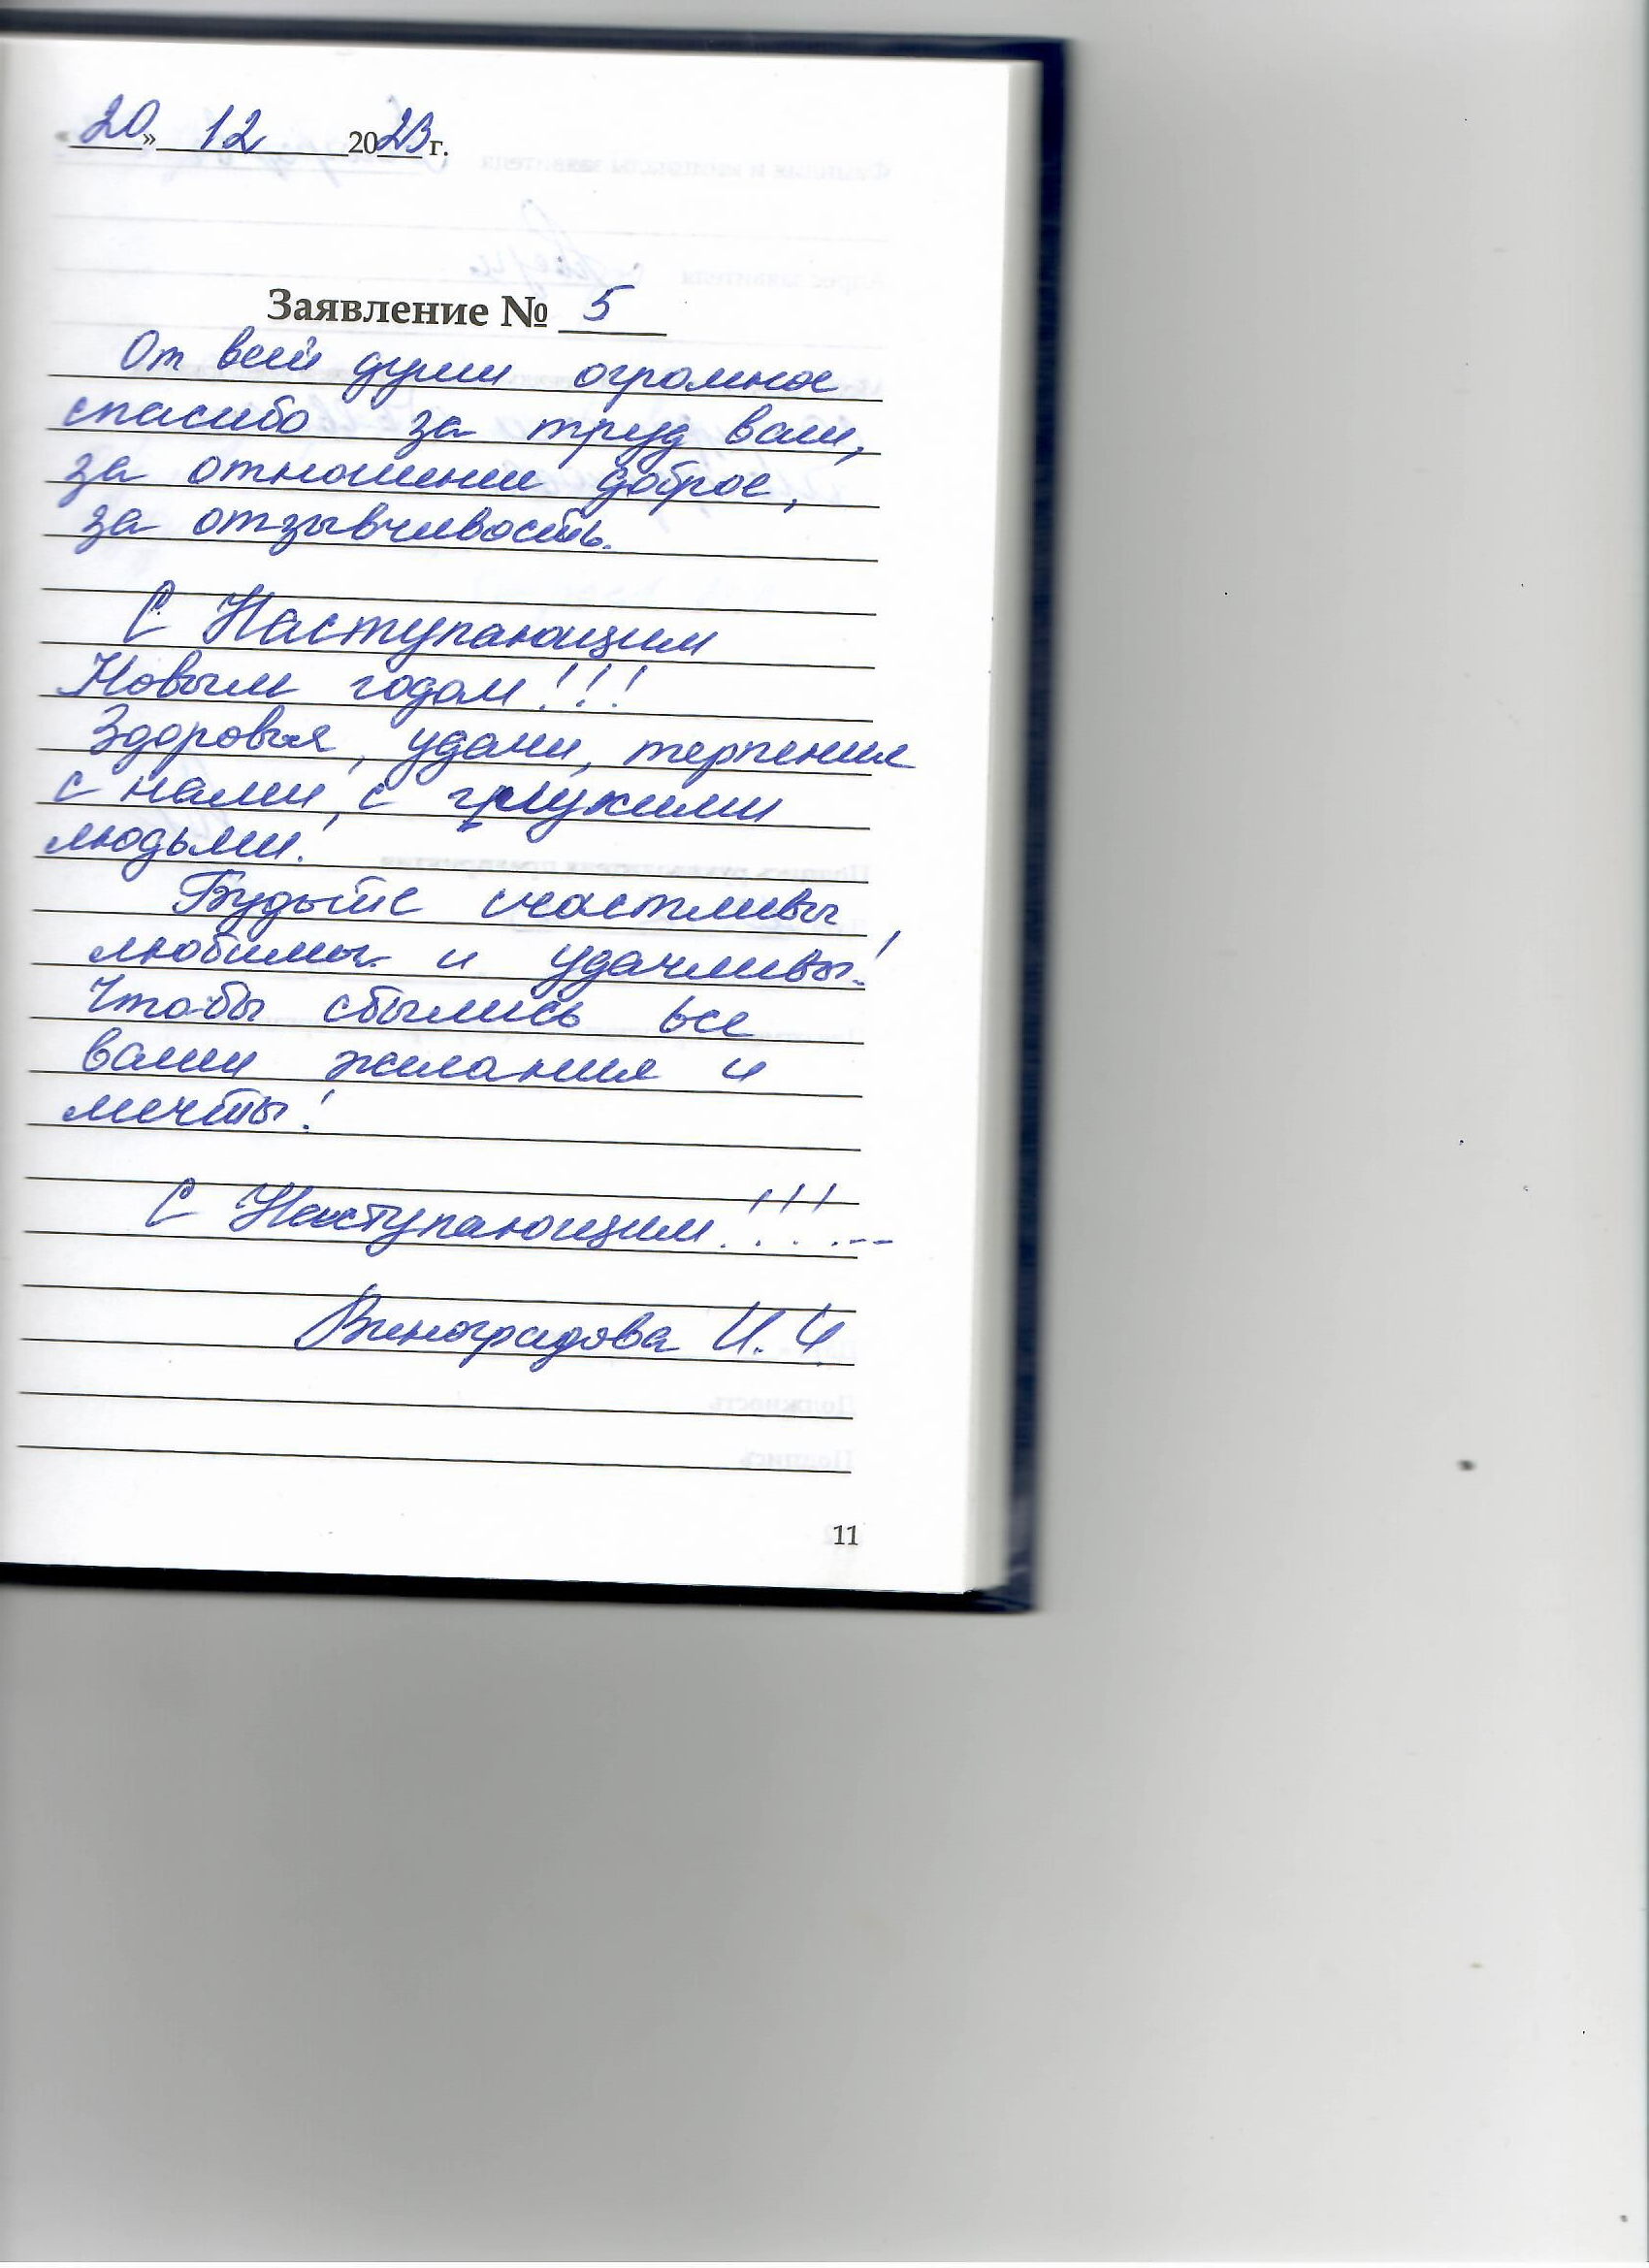 «20» 12 2023 г.
Заявление № 5
От всей души огромное
спасибо за труд ваш,
за отношение доброе,
за отзывчивость.
С Наступающим
Новым годом!!!
Здоровья, удачи, терпения
с нами, с глухими
людьми!
Будьте счастливы,
любимы и удачливы!
Чтобы сбылись все
ваши желания и
мечты!
С Наступающим!!!...
Виноградова И.И.
11